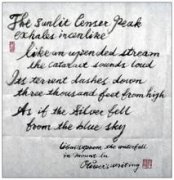 The sunlit Censer Peak
exhales incenlike
like an upended stream
the cataract sounds loud
Its torrent dashes down
three thousand feet from high
As if the Silver fell
from the blue sky
the waterfall
in mount Lu